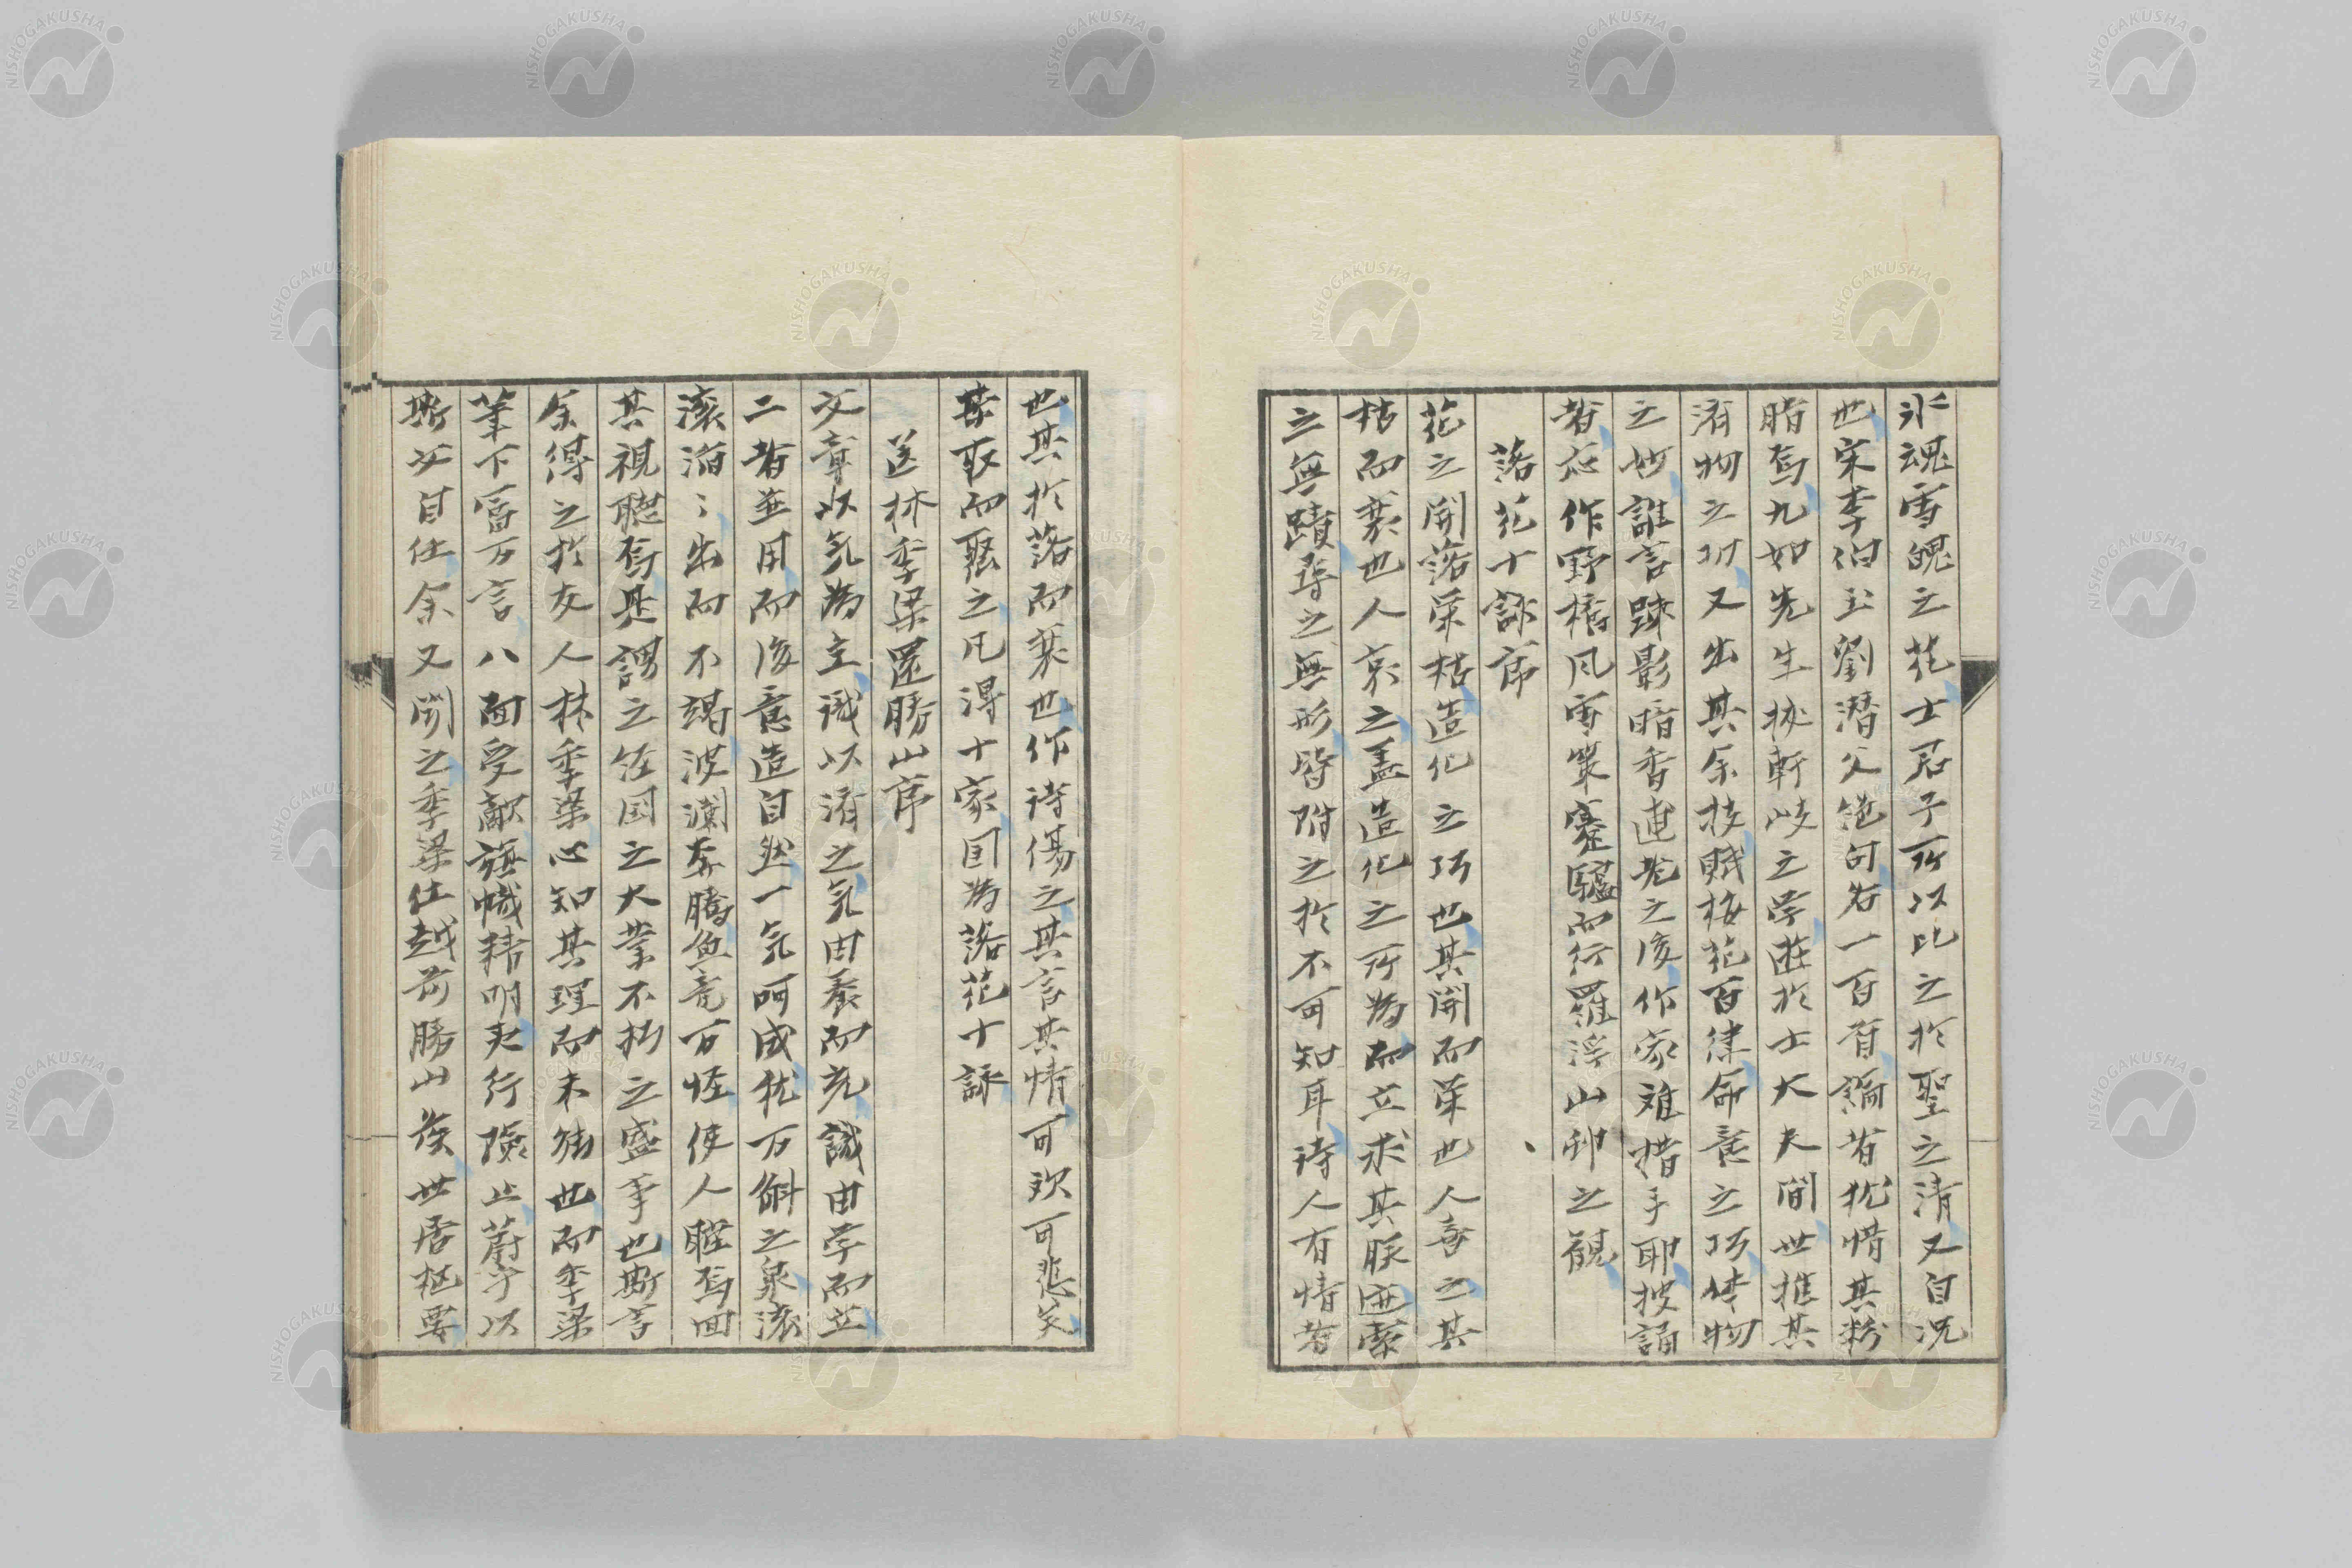 氷魂雪魄之花士君子所以比之於聖之清又自况
也宋李伯玉劉潜父絶句各一百首論者犹惜其粉
脂焉九如先生挾軒岐之学遊於士大夫間世推其
済物之功又出其余技賦梅花百律命意之巧体物
之妙誰言踈影暗香逋老之後作家难措手耶披誦
者応作野橋风雪策蹇驢而行羅浮山邨之観
落花十詠序
花之開落栄枯造化之巧也其開而栄也人喜之其
枯而衰也人哀之盖造化之所為而立求其朕迹索
之無蹟尋之無形皆附之於不可知耳诗人有情者
也其於落而衰也作诗傷之其言其情可欢可悲矣
萃取而聚之凡得十家囙為落花十詠
送林季梁還勝山序
文章以気為主識以済之気由養而充識由学而立
二者並用而後意造自然一気呵成犹万斛之泉滚
滚滔々出而不竭波瀾奔騰魚竜万怪使人瞠焉回
其視聴焉是謂之経国之大業不朽之盛事也斯言
余得之於友人林季梁心知其理而未能也而季梁
筆下富万言八面受敵旗幟精明夫行險止蔚乎以
斯文自任余又聞之季梁仕越前勝山侯世居枢要